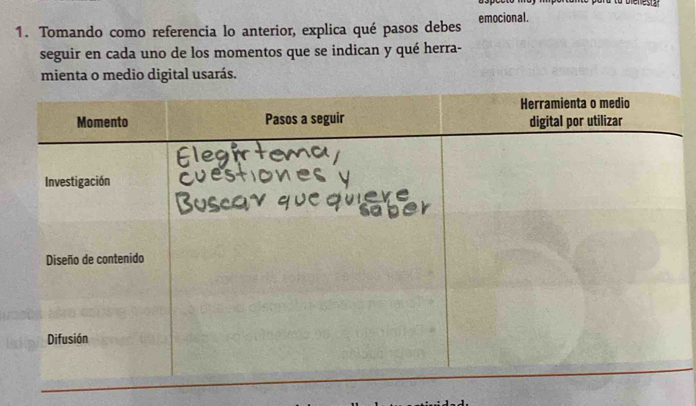 emocional.
1. Tomando como referencia lo anterior, explica qué pasos debes
seguir en cada uno de los momentos que se indican y qué herra-
mienta o medio digital usarás.
Momento
Pasos a seguir
Herramienta o medio
digital por utilizar
Investigación
Elegir tema,
cuestiones y
Buscar que quiere
saber
Diseño de contenido
Difusión